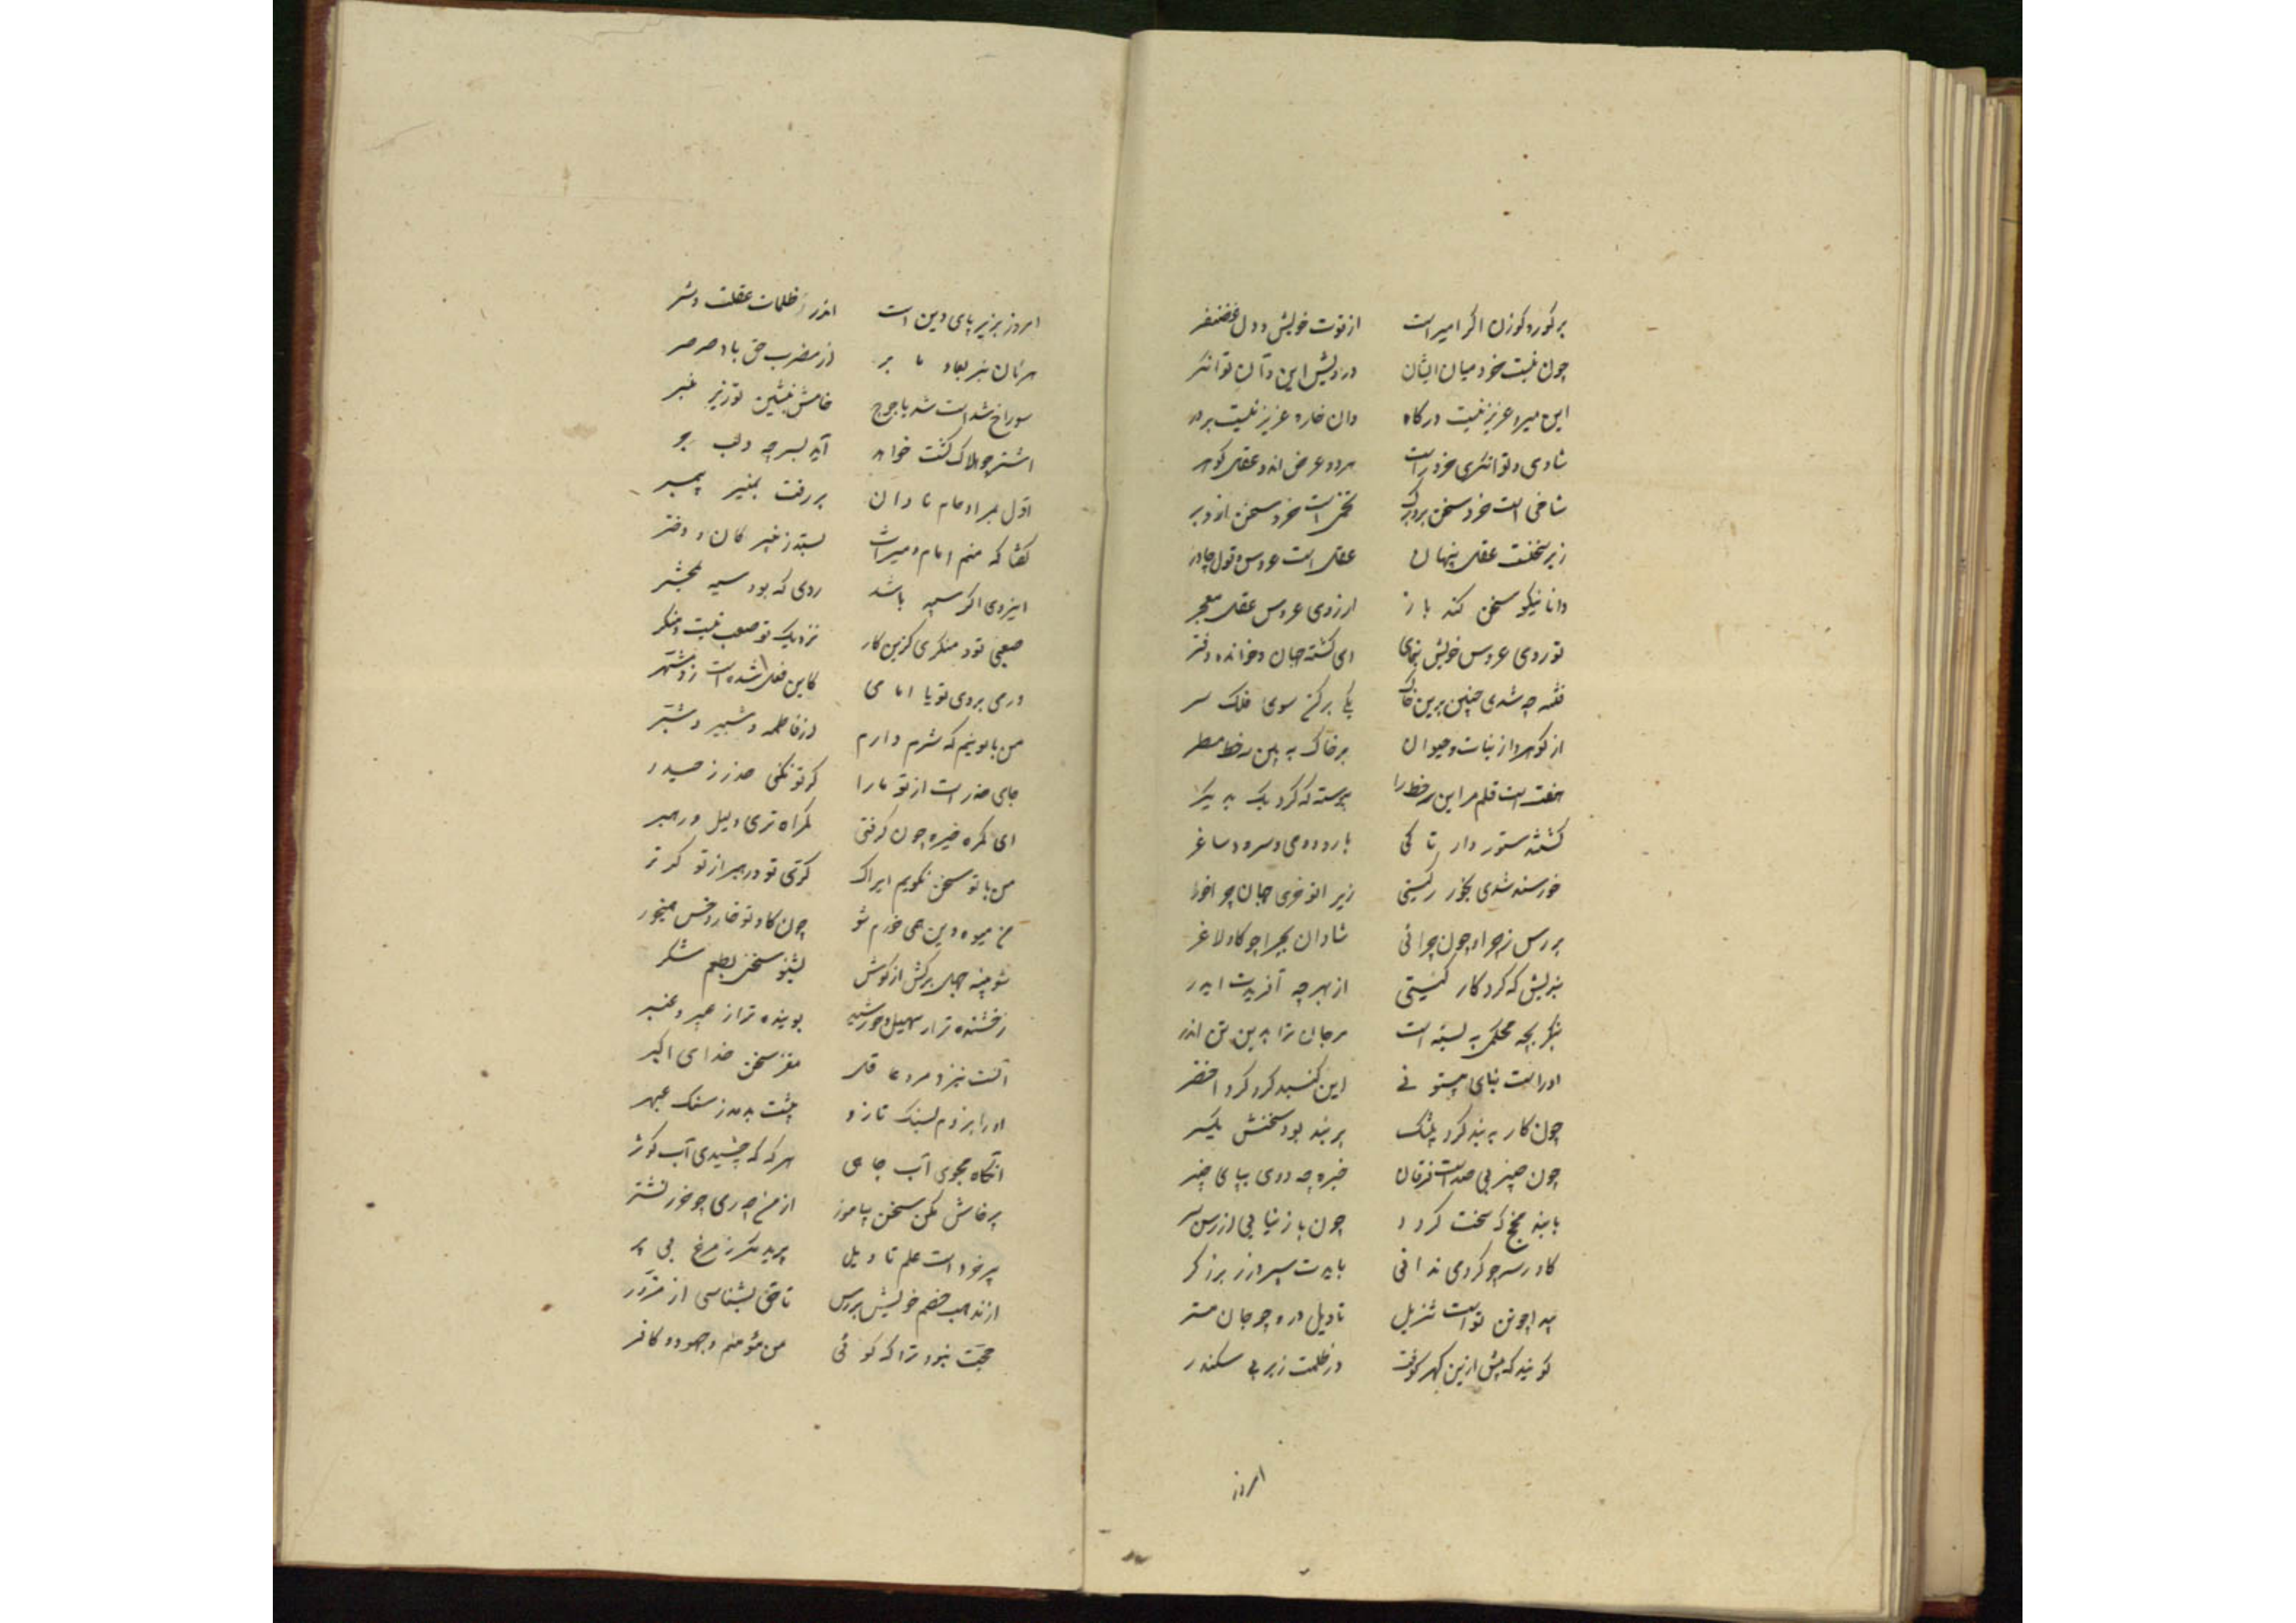 بر گور و گوزن اگر امیر است از قوت خویش و دل غضنفر
چون نیست خرد میان ایشان درویش این و آن توانگر
این میر و عزیز نیست درگاه وان خاره عزیز نیست بر در
شادی و توانگری خرد راست هر دو عرض اند و عقل گوهر
شاخی است خرد سخن برو برگ تخمی است خرد سخن ازو بر
زیر سخنست عقل پنهان عقل است عروس و قول چادر
دانا نیکو سخن کند باز از روی عروس عقل معجر
تو روی عروس خویش بنمای ای گشته جهان و خوانده دفتر
فتنه چه شدی چنین برین خاک یکی برکن سوی فلک سر
از گوهر و از نبات و حیوان بر خاک به بین سه خط مسطر
هفت است قلم مر این سه خط را پیوسته که کرد یک به دیگر
گشته ستور وار تا کی با رود و می و سرود و ساغر
خورسند شدی بخور ز گیتی زیرا تو خری جهان چراخور
بررس ز چرا و چون چرائی شادان بچرا چو گاو لاغر
بندیش که کردگار گیتی از بهر چه آفریدت ایدر
بنگر بچه محکمی به بسته است مر جان ترا بدین تن اندر
او راست بنای بی ستونی این گنبد گرد گرد اخضر
چون کار به بند کرد بیشک پر بند بود سخنش یکسر
چون چیز بی صداست فرقان خیره چه دوی بپای چنبر
با بند مچخ که سخت گردد چون باز بتابی از رسن سر
گاو رسی چو کرد می ندانی بایدت سپرد زر بزرگر
پیدا چو تن تو است تنزیل تاویل درو چو جان مستر
گویند که پیش ازین گهر کوفت در ظلمت زیر پی سکندر
امروز
امروز بزیر پای دین است اندر ظلمات غفلت و شر
از مغرب حق باد صرصر
سوراخ شد است سد یاجوج خامش منشین تو زیر چنبر
اشتر چو هلاک گشت خواهد آید بسر چه و لب جر
اول مراد عام نادان بر رفت بمنبر پیمبر
گفتا که منم امام و میراث بستد ز نبیرگان و دختر
این روی اگر سیه باشد روی که بود سیه بمحشر
صعبی تو و منکری گر این کار نزدیک تو صعب نیست و منکر
ورمی بروی تو با امامی کاین فعل شده است زو مشتهر
من با تو نیم که شرم دارم از فاطمه و شبیر و شبر
جای حذر است از تو ما را گر تو نکنی حذر ز حیدر
ای گمره خیره چون گرفتی گمراه تری دلیل و رهبر
من با تو سخن نگویم ایراک کری تو و رهبر از تو کرتر
من میوه دین همی خورم شو چون گاو تو خار و خس همی خور
شو پنبه جهل برکش از گوش بشنو سخنی بطعم شکر
رخشنده تر از سهیل و خورشید بوینده تر از عبیر و عنبر
آنست نیزد مرد عاقل مغز سخن خدای اکبر
او را بزدم بسنگ تا زو پشت بدمد ز سنگ عبهر
آنگاه مجوی آب جاهی هرگه که چشیدی آب کوثر
پرخاش مکن سخن بیاموز از من چه رمی چو خر ز نشتر
پر خرد است علم تاویل پرد هرگز مرغ بی پر
از مذهب خصم خویش بررس تا حق بشناسی از مزور
حجت نبود ترا که گوئی من مؤمنم و جهود کافر